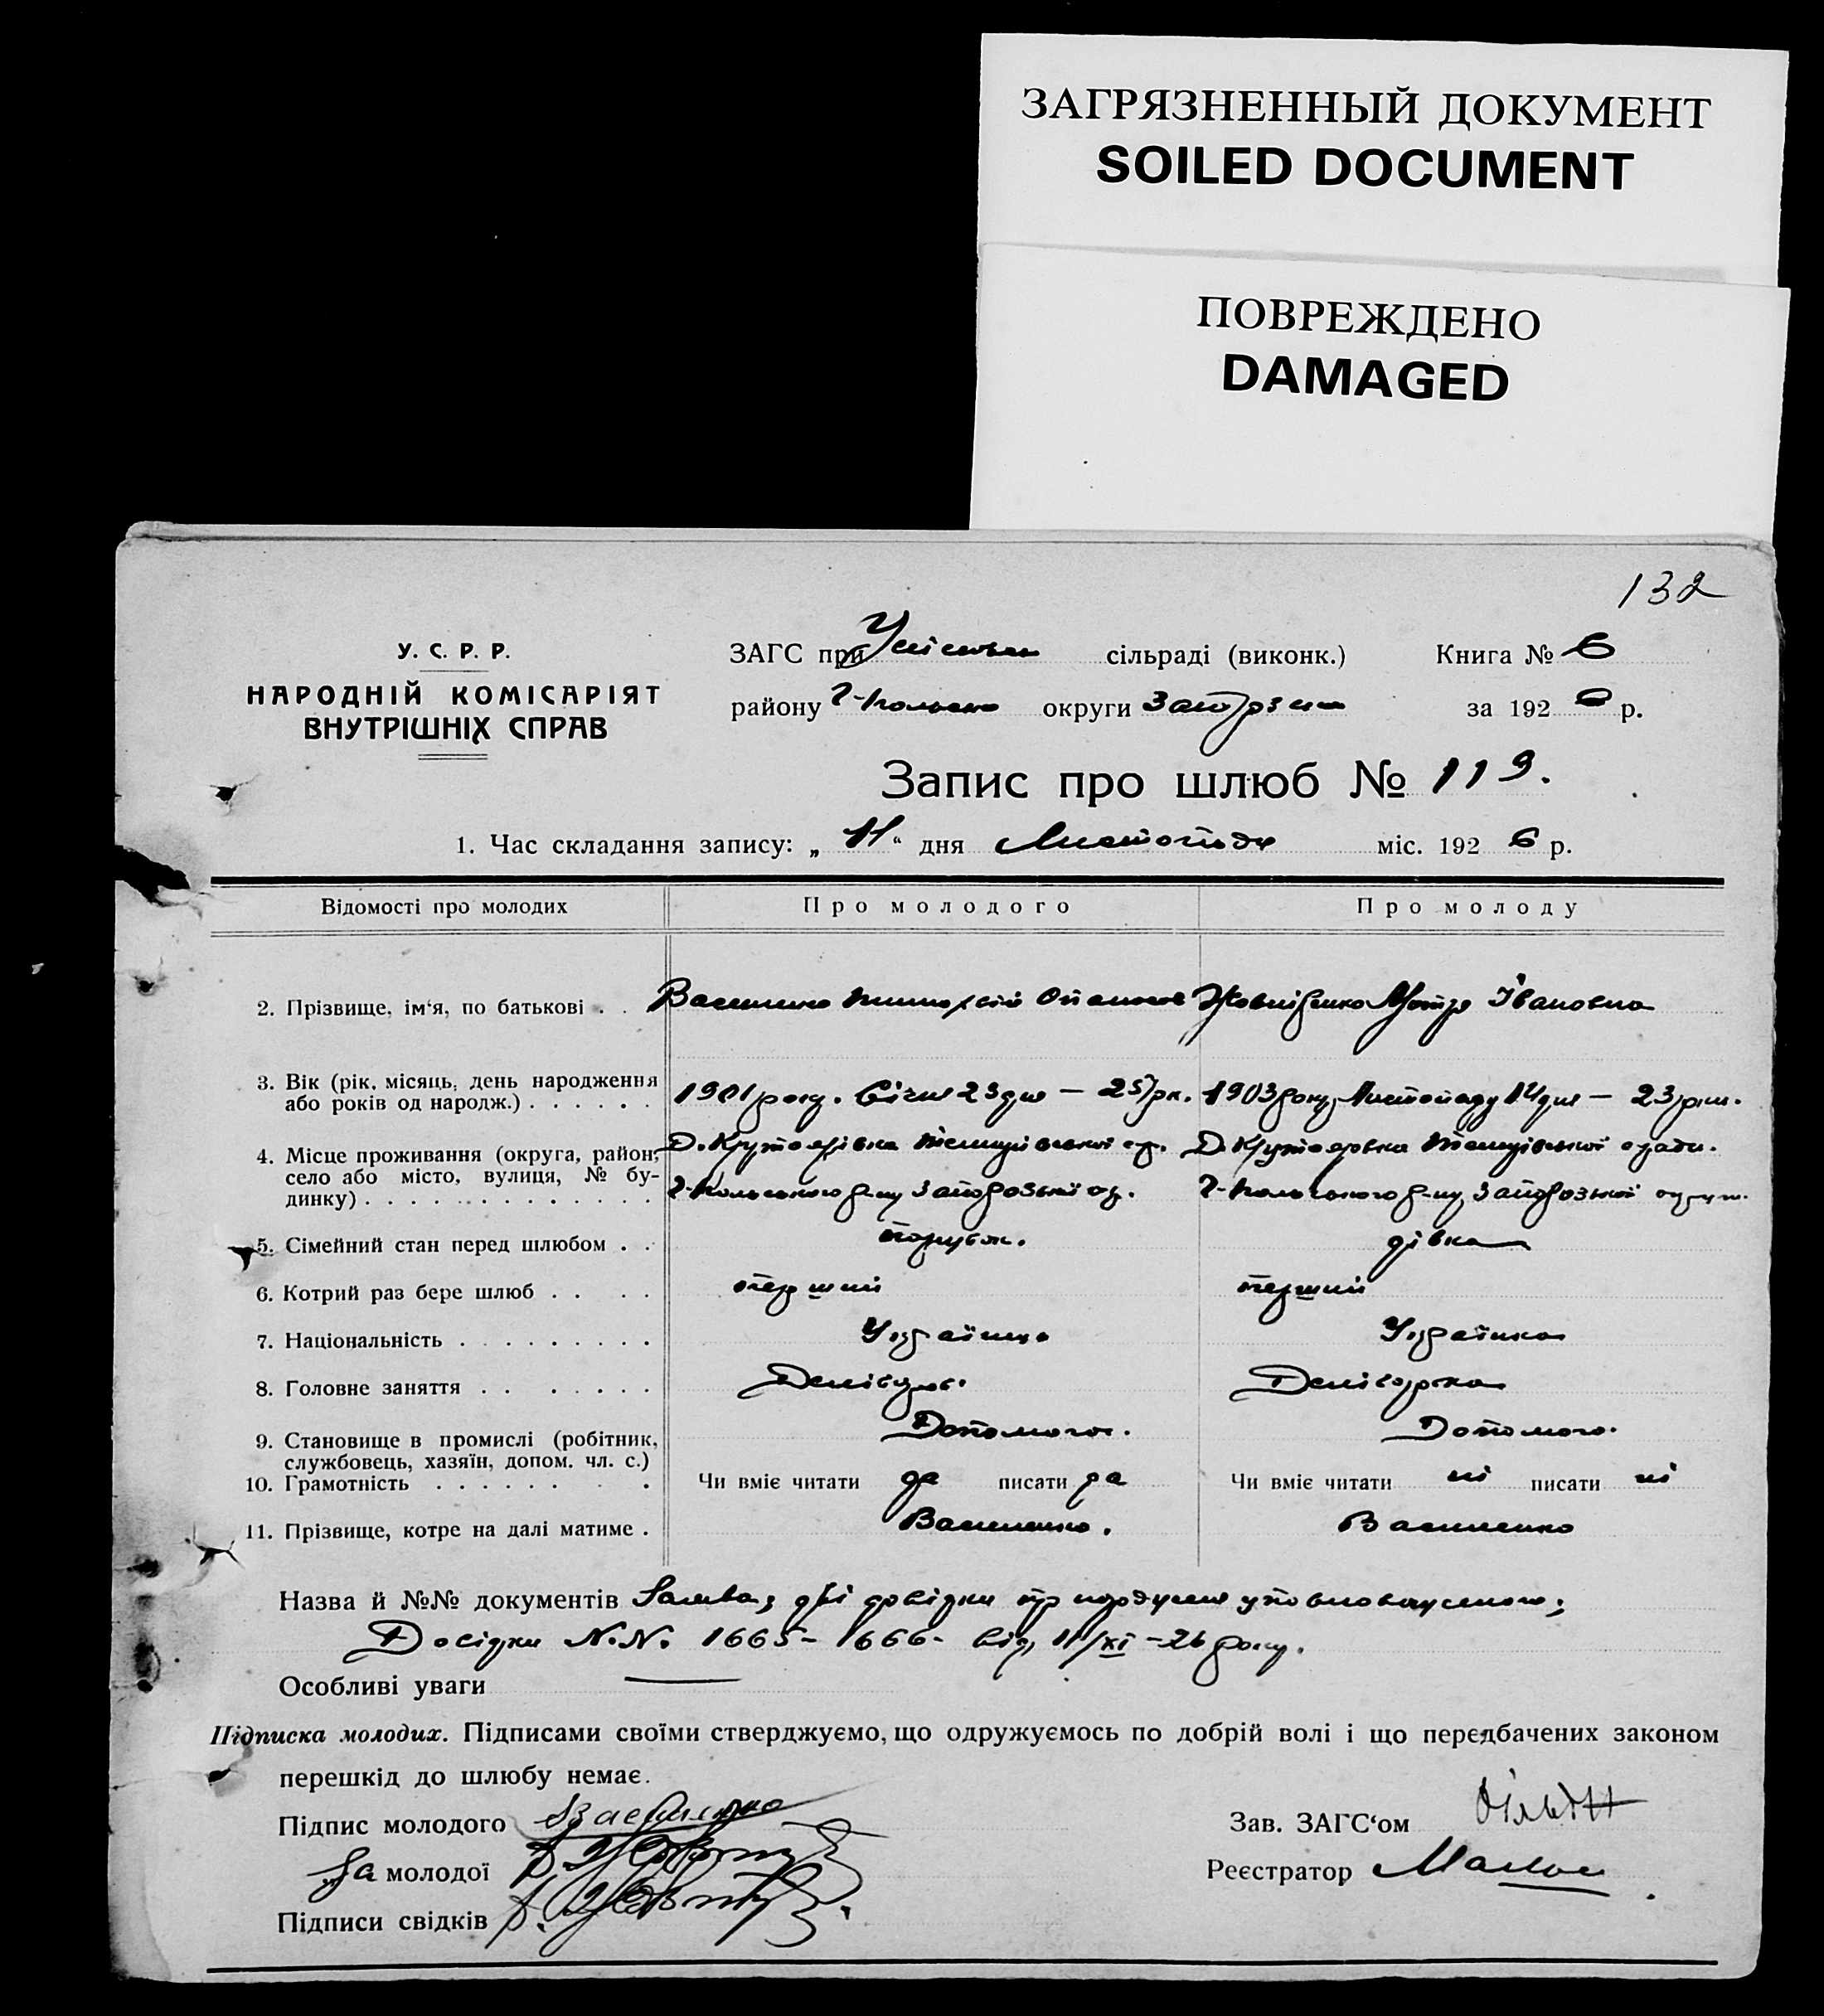 ЗАГРЯЗНЕННЫЙ ДОКУМЕНТ
SOILED DOCUMENT
ПОВРЕЖДЕНО
DAMAGED
132
У. С. Р. Р.
НАРОДНІЙ КОМІСАРІЯТ
ВНУТРІШНІХ СПРАВ
ЗАГС при сільраді (виконк.) Книга № 6
району округи за 1926 р.
Запис про шлюб № 119.
1. Час складання запису: „11“ дня Листопада міс. 1926 р.
Відомості про молодих Про молодого Про молоду
2. Прізвище, ім‘я, по батькові . . Василенко Мотря Івановна
3. Вік (рік, місяць, день народження
або років од народж.) . . . . . . 1901 року. Січня 23 дня — 25 рк. 1903 року Листопаду 14 дня — 23 рки.
4. Місце проживання (округа, район, Д. Крутоярівка Д. Крутоярівка
село або місто, вулиця, № бу-
динку) . . . . . . . . . . . . . Г-Польського р-ну Запорозької ок. Г-Польського р-ну Запорозької
5. Сімейний стан перед шлюбом . . парубок. дівка
6. Котрий раз бере шлюб . . . . перший перший
7. Національність . . . . . . . . . Українець Українка
8. Головне заняття . . . . . . .
9. Становище в промислі (робітник, Допомога. Допомога.
службовець, хазяїн, допом. чл. с.)
10. Грамотність . . . . . . . . Чи вміє читати да писати да Чи вміє читати ні писати ні
11. Прізвище, котре на далі матиме . Василенко. Василенко
Назва й №№ документів Заява, дві довідки
N.N. 1665 - 1666 - від 11/XI - 26 року.
Особливі уваги —
Підписка молодих. Підписами своїми стверджуємо, що одружуємось по добрій волі і що передбачених законом
перешкід до шлюбу немає.
Підпис молодого Василенко Зав. ЗАГС‘ом
За молодої Реєстратор
Підписи свідків